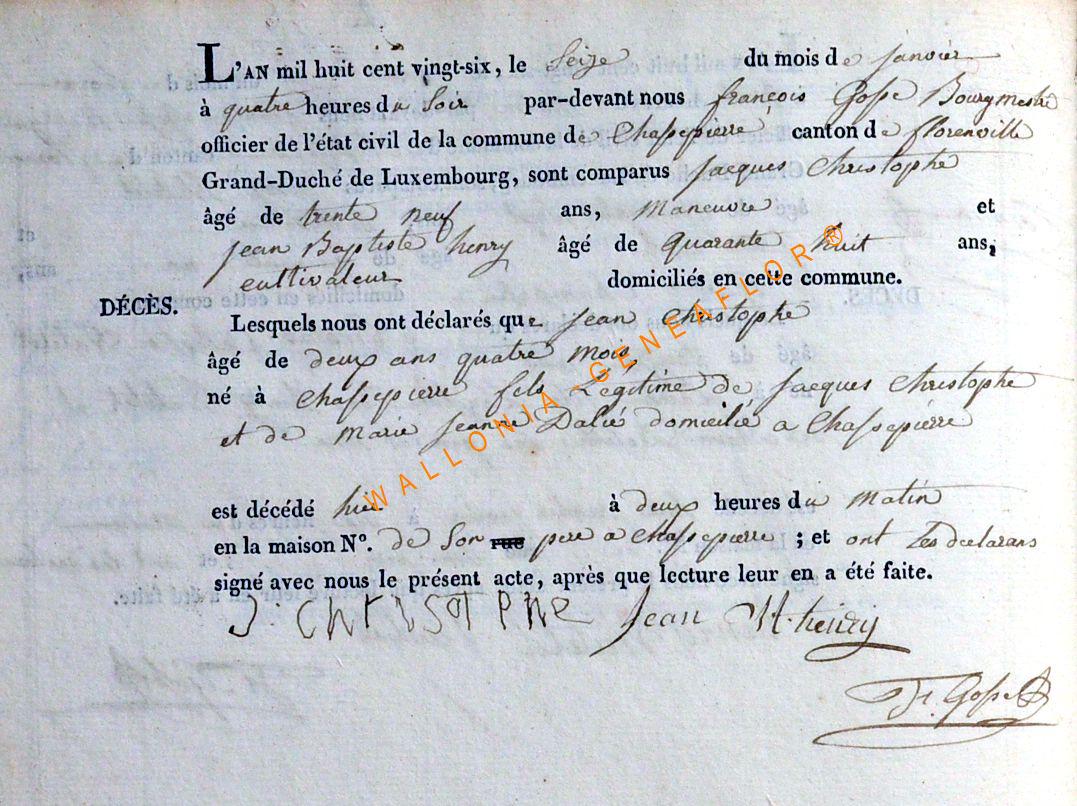 L'AN mil huit cent vingt-six, le Seize du mois de janvier
à quatre heures du Soir par-devant nous françois Gosse Bourgmestre
officier de l'état civil de la commune de Chassepierre canton de florenville
Grand-Duché de Luxembourg, sont comparus Jacques Christophe
âgé de trente neuf ans, Maneuvre et
Jean Baptiste henry âgé de quarante huit ans,
cultivateur domiciliés en cette commune.
DÉCÈS.
Lesquels nous ont déclarés que Jean Christophe
âgé de deux ans quatre mois
né à Chassepierre fils Légitime de Jacques Christophe
et de Marie Jeanne Dalié domicilié a Chassepierre
est décédé hier à deux heures du Matin
en la maison N°. de Son rue pere a Chassepierre ; et ont Les declarans
signé avec nous le présent acte, après que lecture leur en a été faite.
J: CHriSTOPHE Jean Bt henry
F. Gosse
WALLONIA-GENEAFLOR®